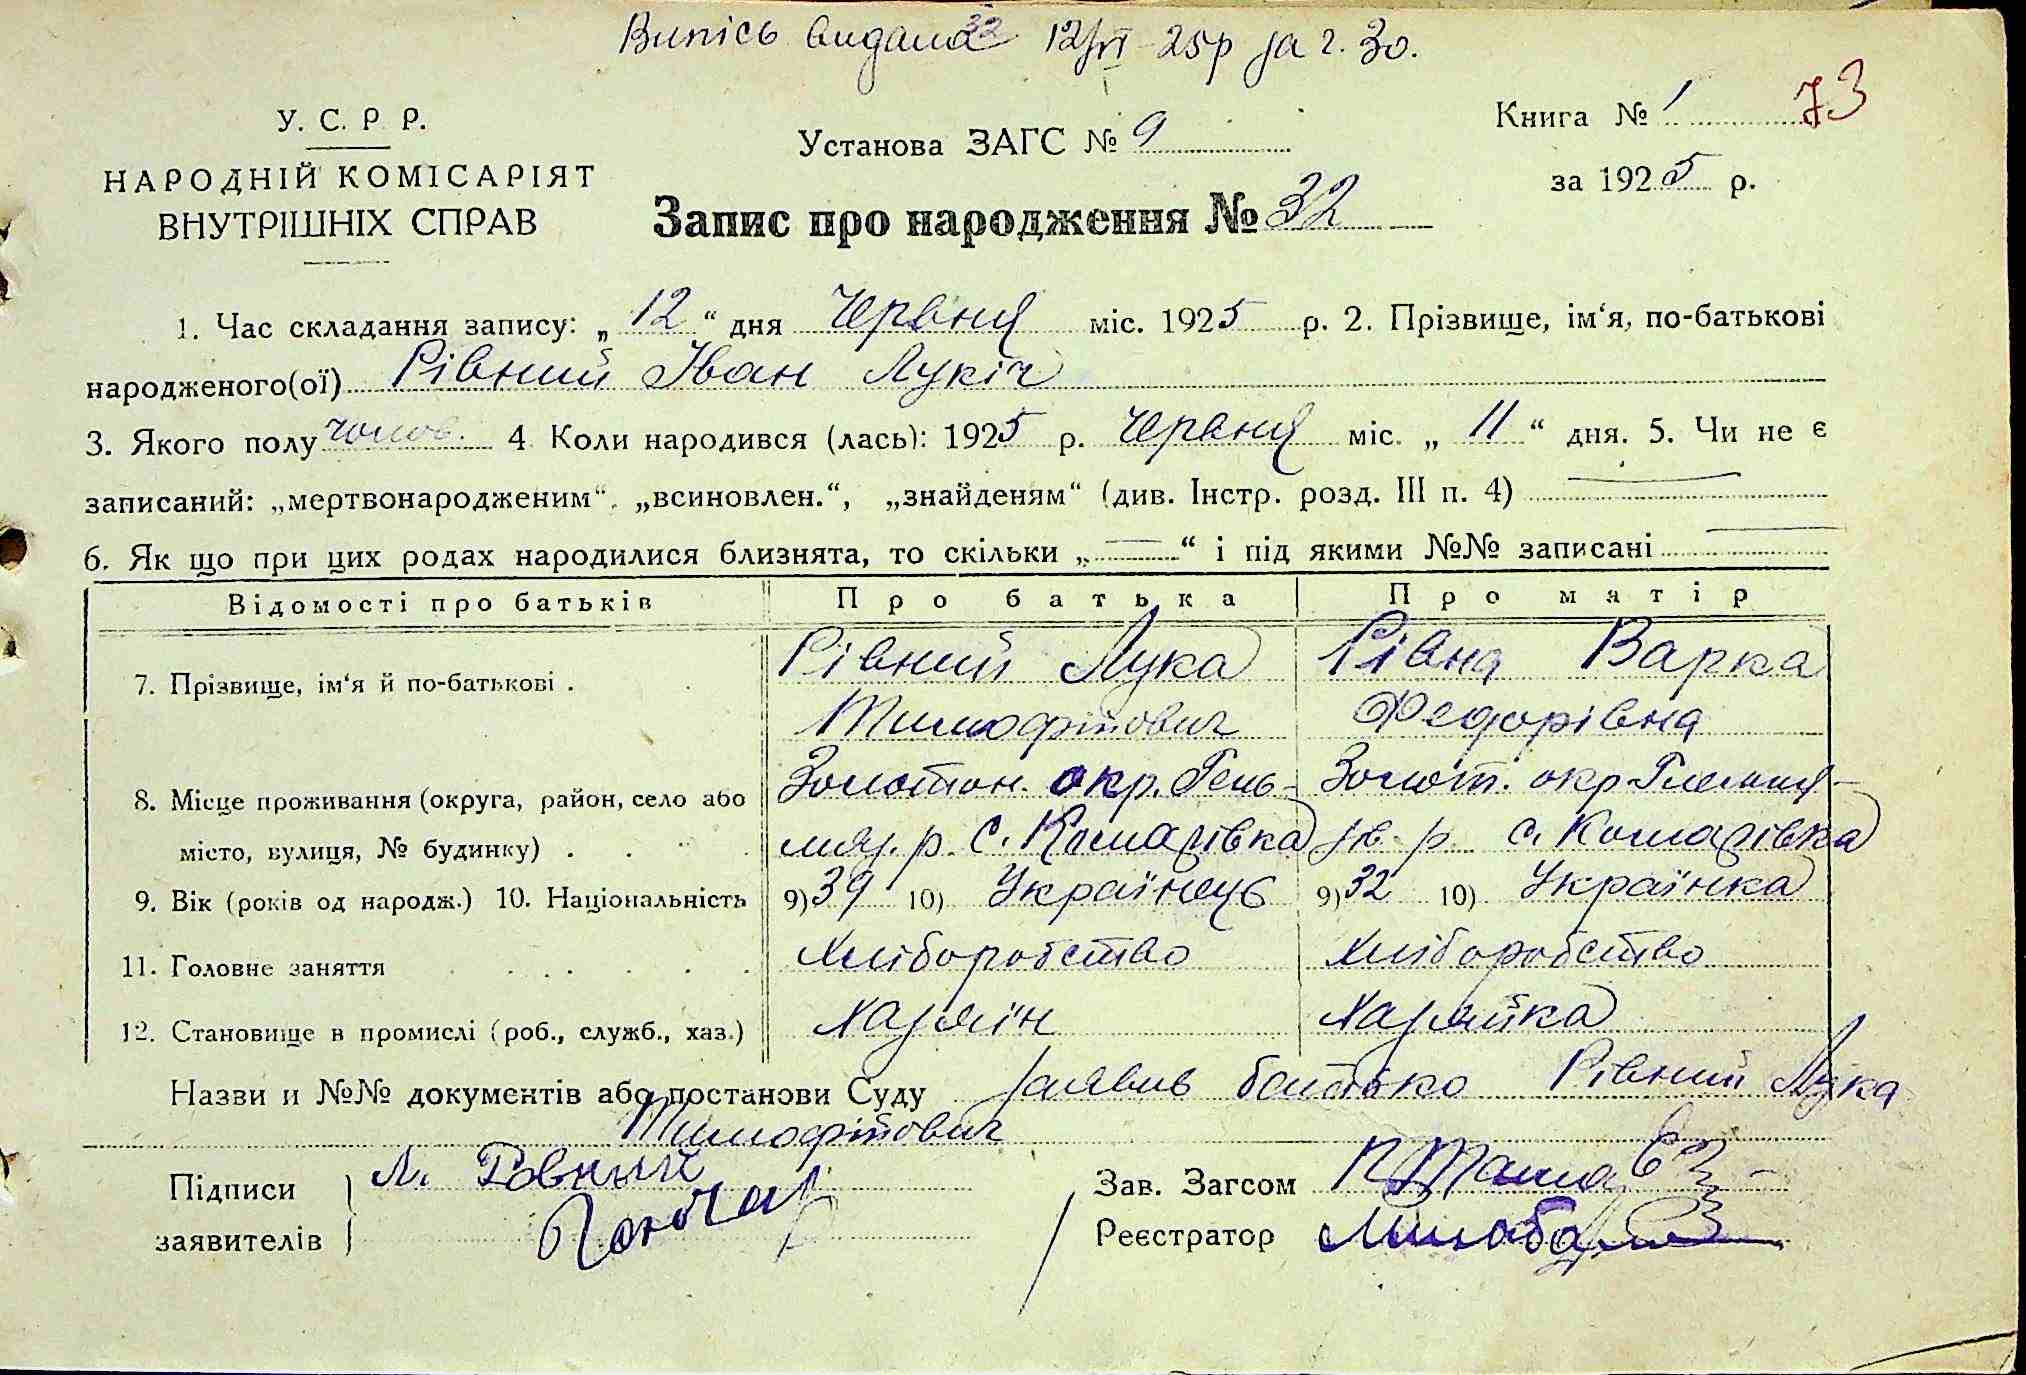 Випісь видана 32 12/VI 25р за г. 30.
У. С. Р Р.
НАРОДНІЙ КОМІСАРІЯТ
ВНУТРІШНІХ СПРАВ
Установа ЗАГС № 9
Книга № 1 73
за 1925 р.
Запис про народження № 32
1. Час складання запису: „12“ дня Червня міс. 1925 р. 2. Прізвище, ім‘я, по-батькові
народженого(ої) Рівний Іван Лукіч
3. Якого полу чолов. 4 Коли народився (лась): 1925 р. Червня міс. „11“ дня. 5. Чи не є
записаний: „мертвонародженим“, „всиновлен.“, „знайденям“ (див. Інстр. розд. III п. 4) —
6. Як що при цих родах народилися близнята, то скільки „—“ і під якими №№ записані —
Відомості про батьків Про батька Про матір
7. Прізвище, ім‘я й по-батькові . Рівний Лука Рівна Варка
Тимофійович Федорівна
8. Місце проживання (округа, район, село або Золотон. окр. Гель- Золот. окр
місто, вулиця, № будинку) . . . . мяз. р. с. Комарівка зів. р с. Комарівка
9. Вік (років од народж.) 10. Національність 9) 39 10) Українець 9) 32 10) Українка
11. Головне заняття . . . . . . Хліборобство Хліборобство
12. Становище в промислі (роб., служб., хаз.) Хазяїн Хазяйка
Назви и №№ документів або постанови Суду заявив батько Рівний Лука
Тимофійович
Підписи Л. Ровный Зав. Загсом
заявителів Гончар Реєстратор